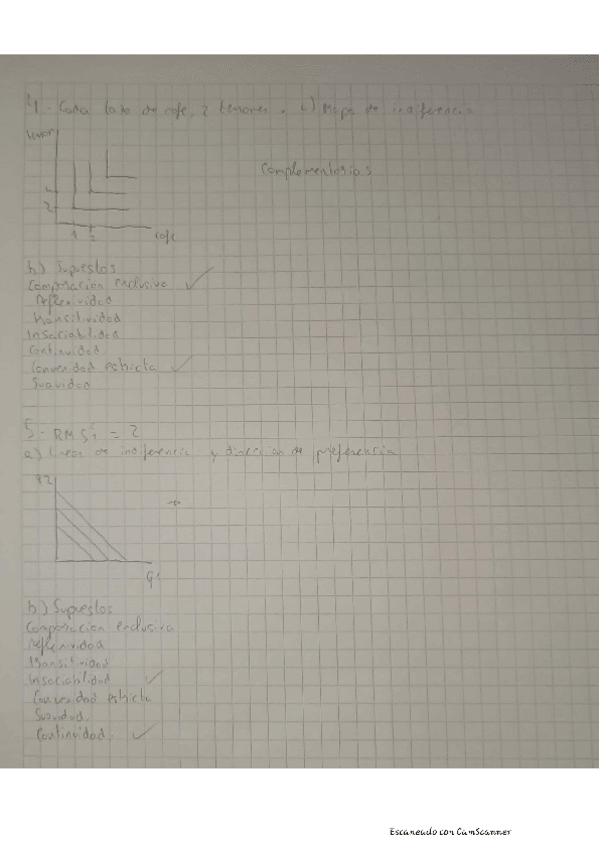 4.- Cada taza de cafe, 2 terrones. a) Mapa de indiferencia
terron
Complementarios
4
2
1 2 cafe
b) Supuestos
Comparación exclusiva ✓
Reflexividad
Transitividad
Insaciabilidad
Continuidad
Convexidad estricta ✓
Suavidad
5.- RMS = 2
a) Curva de indiferencia y dirección de preferencia
b) Supuestos
Comparación exclusiva
Reflexividad
Transitividad
Insaciabilidad ✓
Convexidad estricta
Suavidad
Continuidad ✓
Escaneado con CamScanner